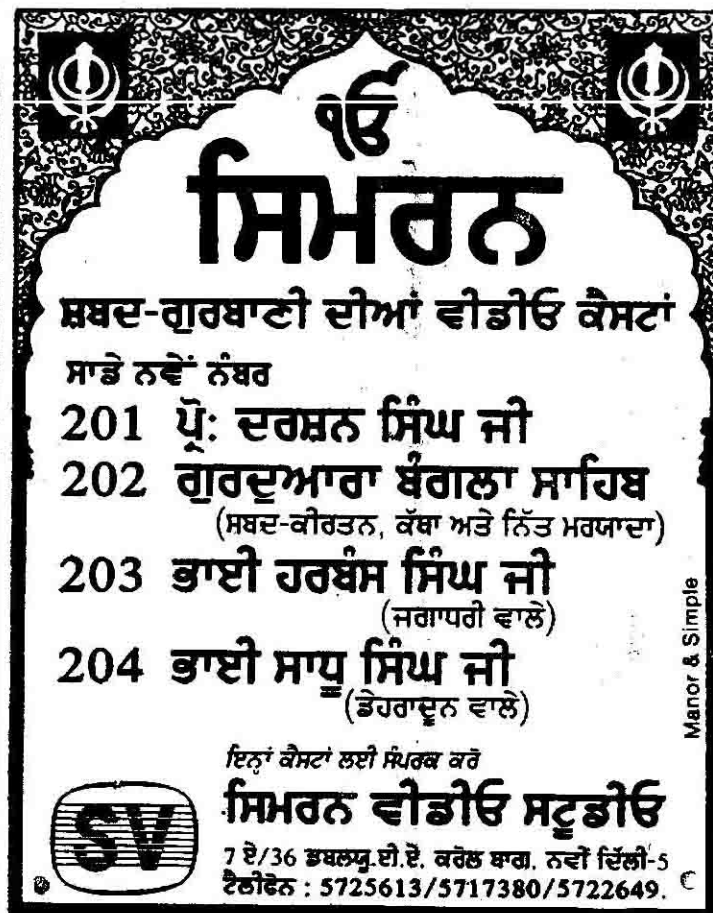 ੴ
ਸਿਮਰਨ
ਸ਼ਬਦ-ਗੁਰਬਾਣੀ ਦੀਆਂ ਵੀਡੀਓ ਕੈਸਟਾਂ
ਸਾਡੇ ਨਵੇਂ ਨੰਬਰ
201 ਪ੍ਰੋ: ਦਰਸ਼ਨ ਸਿੰਘ ਜੀ
202 ਗੁਰਦੁਆਰਾ ਬੰਗਲਾ ਸਾਹਿਬ
(ਸਬਦ-ਕੀਰਤਨ, ਕੱਥਾ ਅਤੇ ਨਿੱਤ ਮਰਯਾਦਾ)
203 ਭਾਈ ਹਰਬੰਸ ਸਿੰਘ ਜੀ
(ਜਗਾਧਰੀ ਵਾਲੇ)
204 ਭਾਈ ਸਾਧੂ ਸਿੰਘ ਜੀ
(ਡੇਹਰਾਦੂਨ ਵਾਲੇ)
Manor & Simple
ਇਨ੍ਹਾਂ ਕੈਸਟਾਂ ਲਈ ਸੰਪਰਕ ਕਰੋ
ਸਿਮਰਨ ਵੀਡੀਓ ਸਟੂਡੀਓ
SV
7 ਏ/36 ਡਬਲਯੂ.ਈ.ਏ. ਕਰੋਲ ਬਾਗ. ਨਵੀਂ ਦਿੱਲੀ-5
ਟੈਲੀਫੋਨ : 5725613/5717380/5722649.